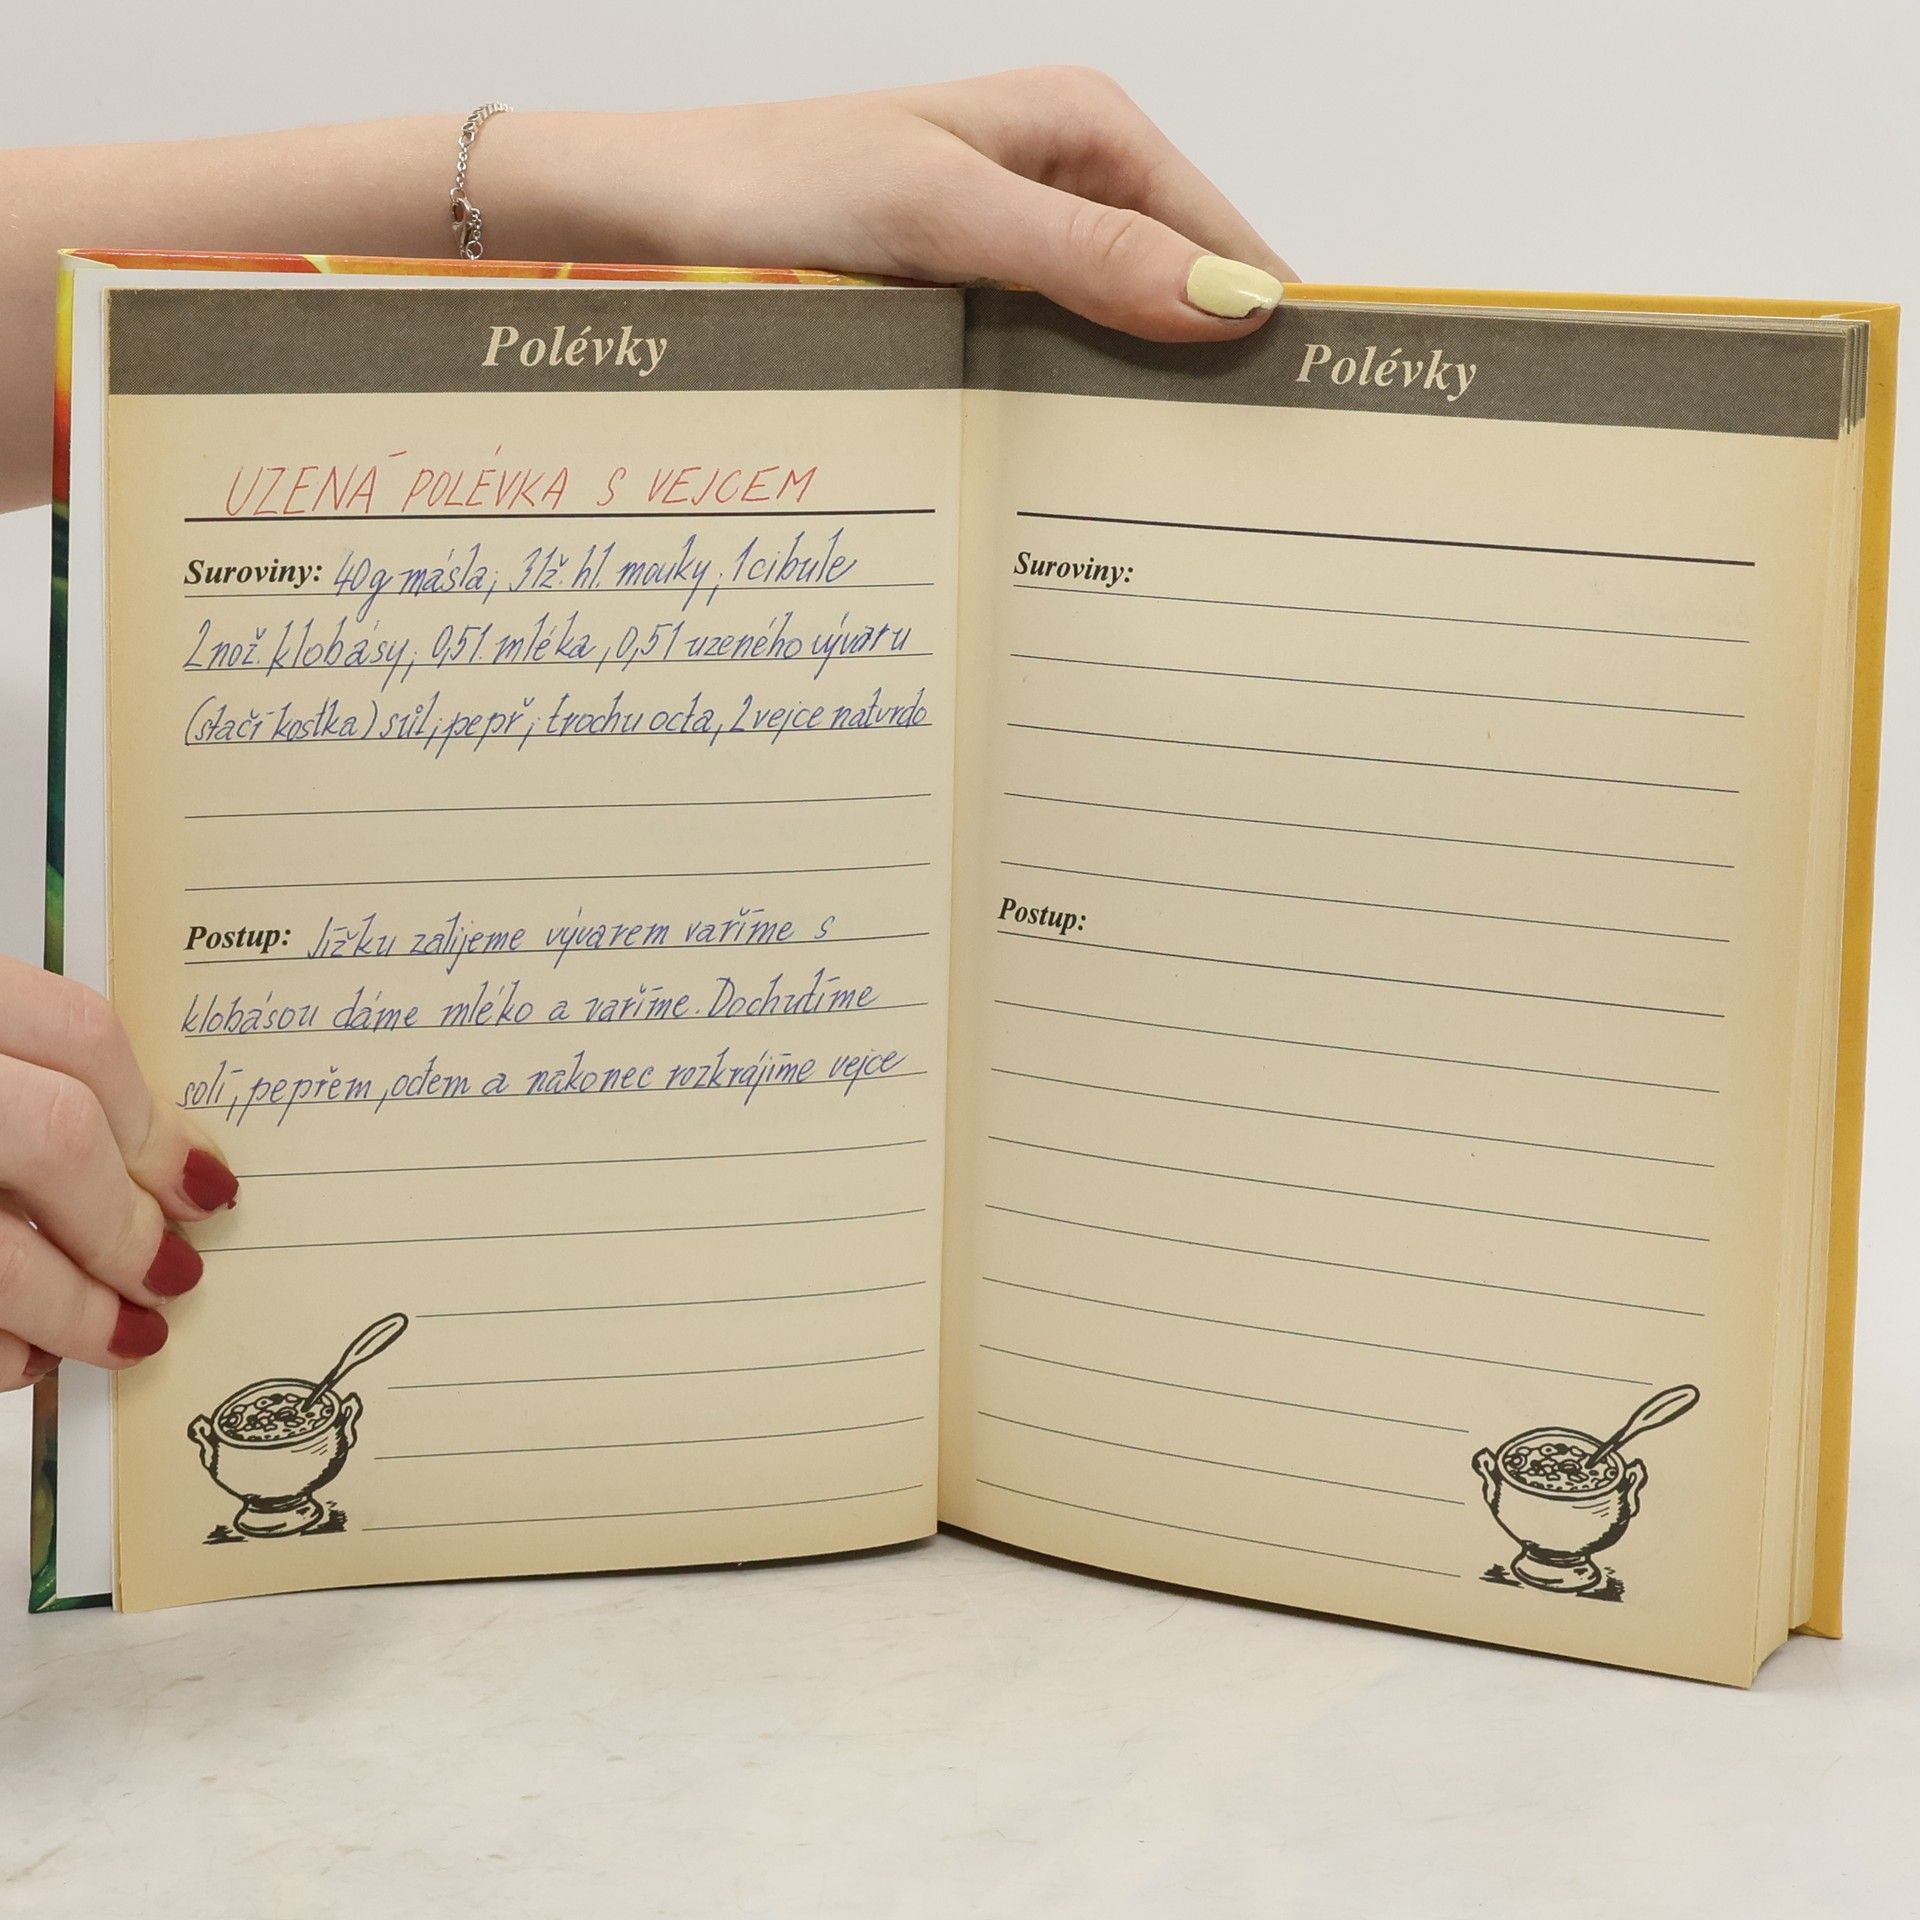 Polévky
UZENÁ POLÉVKA S VEJCEM
Suroviny: 40g másla; 3lž. hl. mouky; 1 cibule
2 nož. klobásy; 0,5l. mléka, 0,5l uzeného vývaru
(stačí kostka) sůl; pepř; trochu octa, 2 vejce natvrdo
Postup: Jížku zalijeme vývarem vaříme s
klobásou dáme mléko a vaříme. Dochutíme
solí, pepřem, octem a nakonec rozkrájíme vejce
Polévky
Suroviny:
Postup: